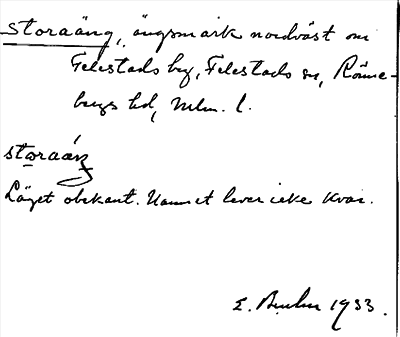 Storaäng, ängsmark nordväst om
Felestads by, Felestads sn, Rönne-
bergs hd, Mlm. l.
storaáŋ
Läget obekant. Namnet lever icke kvar.
E. 1933.